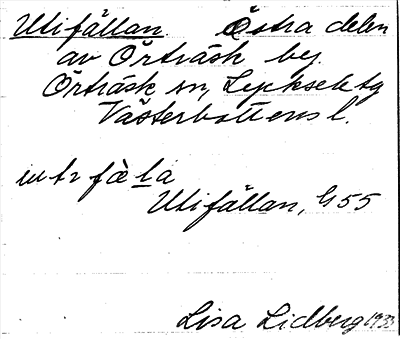 Utifällan. Östra delen
av Örträsk by.
Örträsk sn, Lycksele tg
Västerbottens l.
fὲla
Utifällan, G 55
Lisa Lidberg 1933